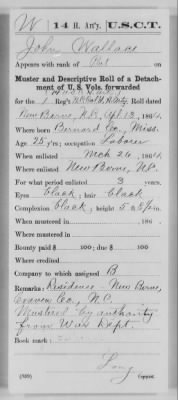 W 14 R. Art'y. U.S.C.T.
John Wallace
Appears with rank of Pvt
Muster and Descriptive Roll of a Detach-
ment of U. S. Vols. forwarded
for the 1 Reg't N.C. Col'd H. Art'y. Roll dated
New Berne, N.C., Apl. 13, 1864.
Where born Co., Miss.
Age 25 y'rs; occupation Laborer
When enlisted Mch 26, 1864.
Where enlisted New Berne, N.C.
For what period enlisted 3 years.
Eyes black; hair black
Complexion black; height 5 ft. in.
When mustered in , 186 .
Where mustered in
Bounty paid $ 100; due $ 100
Where credited
Company to which assigned B
Remarks: Residence - New Berne,
Craven Co., N.C.
Mustered by authority
from War Dept.
Book mark:
Long
(339) Copyist.